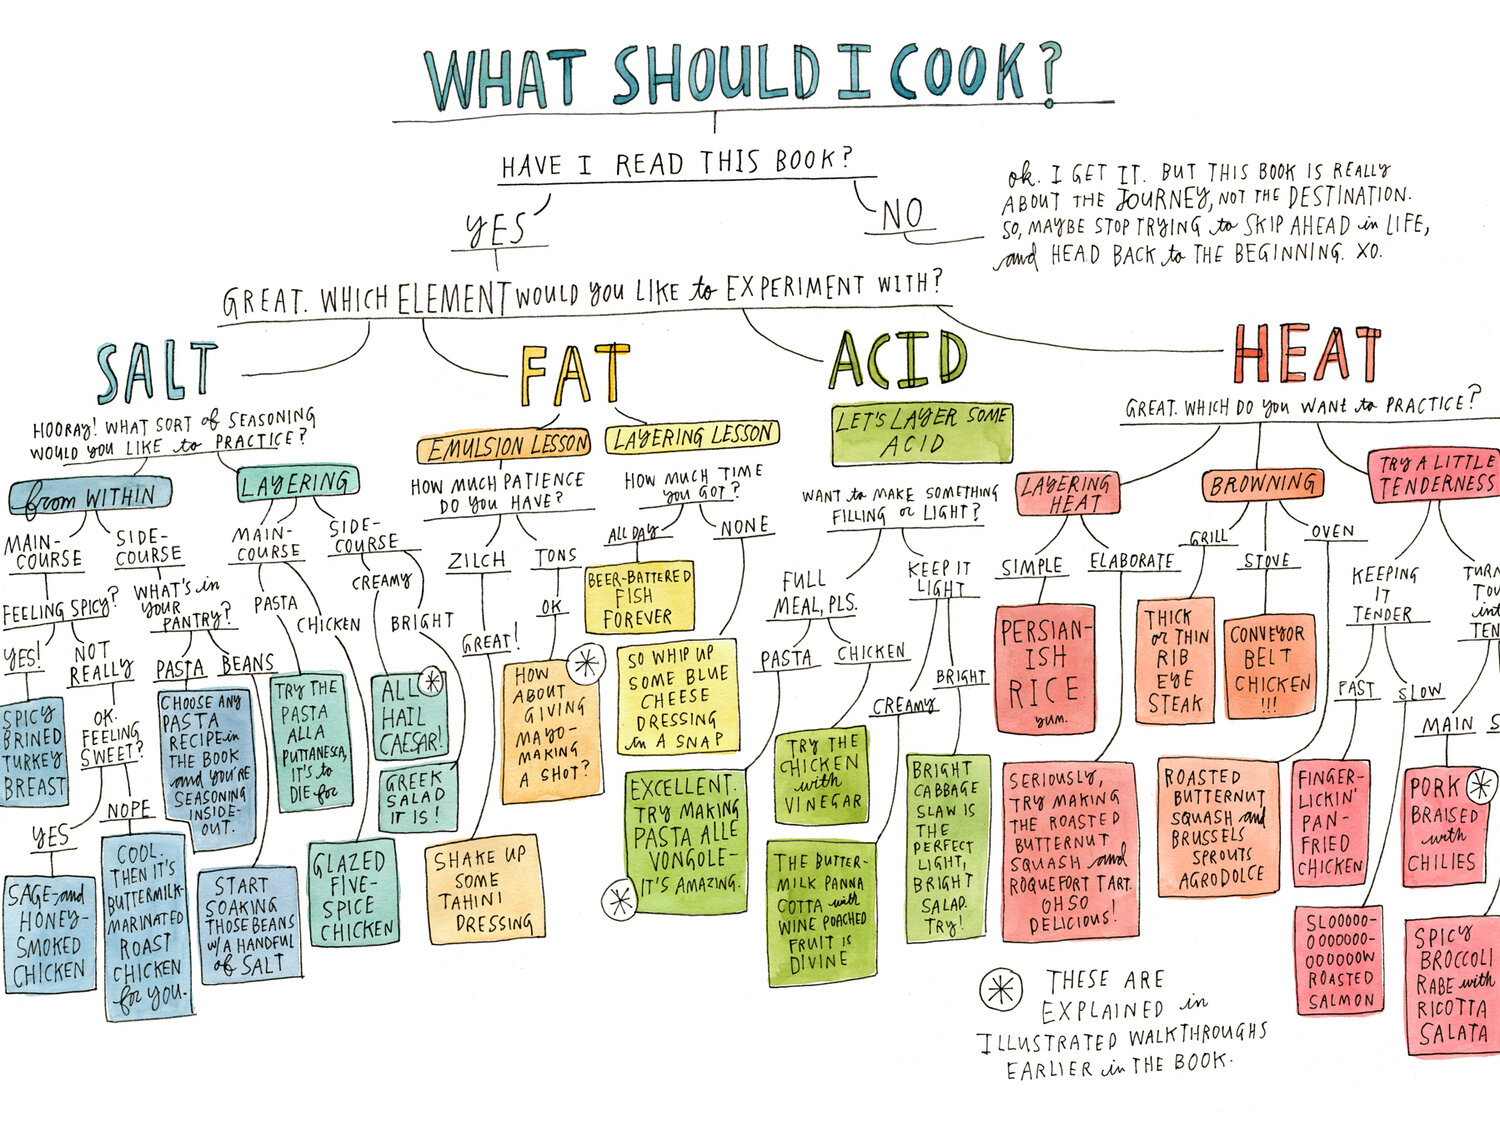 WHAT SHOULD I COOK?
HAVE I READ THIS BOOK?
YES
NO
ok. I GET IT. BUT THIS BOOK IS REALLY
ABOUT THE JOURNEY, NOT THE DESTINATION.
SO, MAYBE STOP TRYING to SKIP AHEAD in LIFE,
and HEAD BACK to THE BEGINNING. XO.
GREAT. WHICH ELEMENT WOULD YOU LIKE to EXPERIMENT WITH?
SALT
HOORAY! WHAT SORT of SEASONING
WOULD YOU LIKE to PRACTICE?
from WITHIN
MAIN-
COURSE
FEELING SPICY?
YES!
SPICY
BRINED
TURKEY
BREAST
NOT
REALLY
OK.
FEELING
SWEET?
YES
SAGE-and
HONEY-
SMOKED
CHICKEN
NOPE
COOL.
THEN IT'S
BUTTERMILK-
MARINATED
ROAST
CHICKEN
for YOU.
SIDE-
COURSE
WHAT'S in
YOUR
PANTRY?
PASTA
CHOOSE ANY
PASTA
RECIPE in
THE BOOK
and YOU'RE
SEASONING
INSIDE-
OUT.
BEANS
START
SOAKING
THOSE BEANS
w/A HANDFUL
of SALT
LAYERING
MAIN-
COURSE
PASTA
TRY THE
PASTA
ALLA
PUTTANESCA,
IT'S to
DIE for
CHICKEN
GLAZED
FIVE-
SPICE
CHICKEN
SIDE-
COURSE
CREAMY
ALL
HAIL
CAESAR!
BRIGHT
GREEK
SALAD
IT IS!
FAT
EMULSION LESSON
HOW MUCH PATIENCE
DO YOU HAVE?
ZILCH
GREAT!
SHAKE UP
SOME
TAHINI
DRESSING
TONS
OK
HOW
ABOUT
GIVING
MAYO-
MAKING
A SHOT?
LAYERING LESSON
HOW MUCH TIME
YOU GOT?
ALL DAY
BEER-BATTERED
FISH
FOREVER
NONE
SO WHIP UP
SOME BLUE
CHEESE
DRESSING
in A SNAP
ACID
LET'S LAYER SOME
ACID
WANT to MAKE SOMETHING
FILLING or LIGHT?
FULL
MEAL, PLS.
PASTA
EXCELLENT.
TRY MAKING
PASTA ALLE
VONGOLE-
IT'S AMAZING.
CHICKEN
TRY THE
CHICKEN
with
VINEGAR
KEEP IT
LIGHT
CREAMY
THE BUTTER-
MILK PANNA
COTTA with
WINE POACHED
FRUIT IS
DIVINE
BRIGHT
BRIGHT
CABBAGE
SLAW IS
THE
PERFECT
LIGHT,
BRIGHT
SALAD.
TRY!
HEAT
GREAT. WHICH DO YOU WANT to PRACTICE?
LAYERING
HEAT
SIMPLE
PERSIAN-
ISH
RICE
yum.
ELABORATE
SERIOUSLY,
TRY MAKING
THE ROASTED
BUTTERNUT
SQUASH and
ROQUEFORT TART.
OH SO
DELICIOUS!
BROWNING
GRILL
THICK
or THIN
RIB
EYE
STEAK
STOVE
CONVEYOR
BELT
CHICKEN
!!!
OVEN
ROASTED
BUTTERNUT
SQUASH and
BRUSSELS
SPROUTS
AGRODOLCE
TRY A LITTLE
TENDERNESS
KEEPING
IT
TENDER
FAST
FINGER-
LICKIN'
PAN-
FRIED
CHICKEN
SLOW
SLOOOOO-
OOOOOOO-
OOOOOOW
ROASTED
SALMON
TURN
TOU
int
TEN
MAIN
S
PORK
BRAISED
with
CHILIES
SPICY
BROCCOLI
RABE with
RICOTTA
SALATA
THESE ARE
EXPLAINED in
ILLUSTRATED WALKTHROUGHS
EARLIER in THE BOOK.